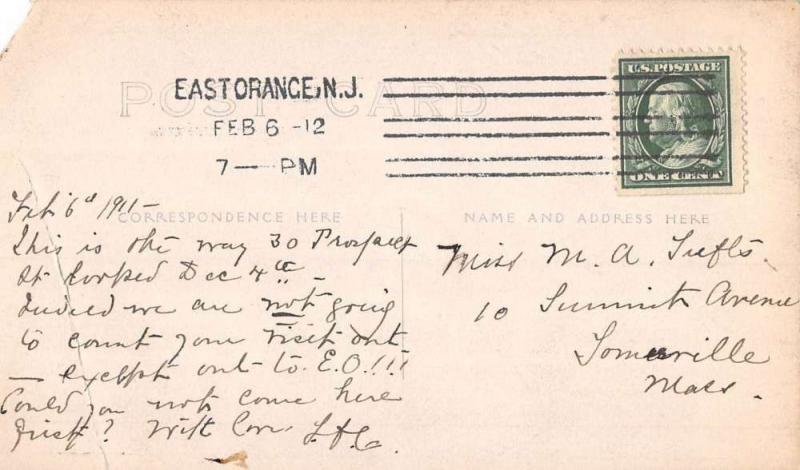 POST CARD
EAST ORANGE, N.J.
FEB 6 -12
7 — PM
U.S. POSTAGE
ONE CENT
CORRESPONDENCE HERE
NAME AND ADDRESS HERE
Feb 6th 1911 -
This is the way 30 Prospect
St looked Dec 4th -
Indeed we are not going
to count your visit out
- except out to E.O.!!!
Could you not come here
first? With Love
Miss M. A. Tufts.
10 Summit Avenue
Somerville
Mass.